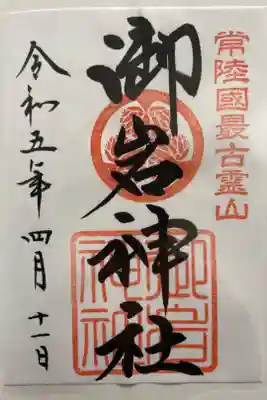 常陸國最古霊山
御岩神社
令和五年四月十一日